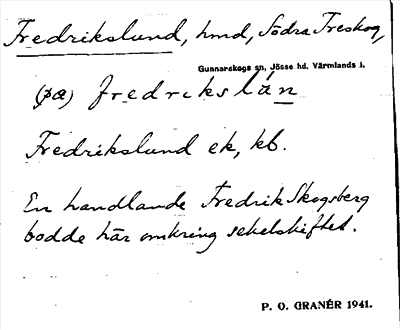 Fredrikslund, hmd, Södra Treskog,
Gunnarskogs sn, Jösse hd, Värmlands l.
(pæ) fredrikslán
Fredrikslund ek, kb.
En handlande Fredrik Skogsberg
bodde här omkring sekelskiftet.
P. O. GRANÉR 1941.